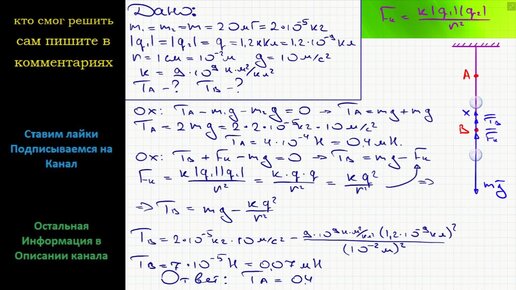 кто смог решить
сам пишите в
комментариях
Ставим лайки
Подписываемся на
Канал
Остальная
Информация в
Описании канала
Дано:
m₁ = m₂ = m = 20 мг = 2·10⁻⁵ кг
|q₁| = |q₂| = q = 1,2 нКл = 1,2·10⁻⁹ Кл
r = 1 см = 10⁻² м g = 10 м/с²
k = 9·10⁹ Н·м²/Кл²
T_A - ? T_B - ?
Ox: T_A - m₁g - m₂g = 0 ⇒ T_A = mg + mg
T_A = 2mg = 2·2·10⁻⁵ кг·10 м/с²
T_A = 4·10⁻⁴ Н = 0,4 мН.
Ox: T_B + F_к - mg = 0 ⇒ T_B = mg - F_к
F_к = k|q₁||q₂|/r² = k·q·q/r² = kq²/r² ⇒
⇒ T_B = mg - kq²/r²
T_B = 2·10⁻⁵ кг·10 м/с² - 9·10⁹ Н·м²/Кл²·(1,2·10⁻⁹ Кл)²/(10⁻² м)²
T_B = 7·10⁻⁵ Н = 0,07 мН
Ответ: T_A = 0,4
F_к = k|q₁||q₂|/r²
A
x
T_B
B
F_к
mg